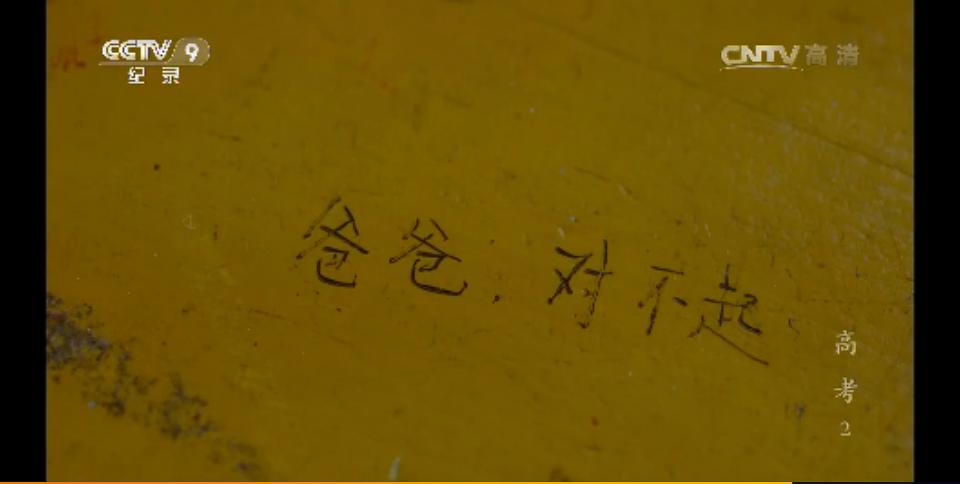 CCTV 9
纪录
CNTV高清
爸爸,对不起
高考2